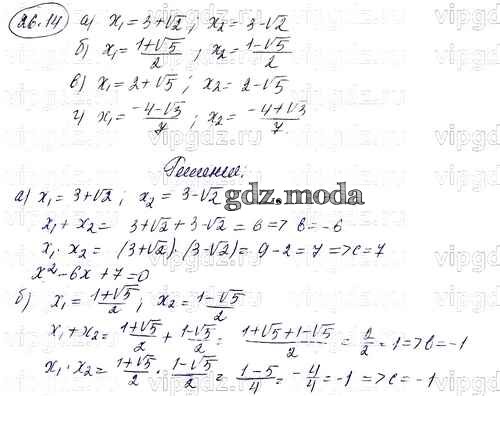 26.14 а) x₁ = 3+√2 ; x₂ = 3-√2
б) x₁ = (1+√5)/2 ; x₂ = (1-√5)/2
в) x₁ = 2+√5 ; x₂ = 2-√5
г) x₁ = (-4-√3)/7 ; x₂ = (-4+√3)/7.
Решение:
а) x₁ = 3+√2 ; x₂ = 3-√2
gdz.moda
x₁ + x₂ = 3+√2 + 3-√2 = 6 => b = -6
x₁ · x₂ = (3+√2) · (3-√2) = 9-2 = 7 => c = 7
x² - 6x + 7 = 0
б) x₁ = (1+√5)/2 ; x₂ = (1-√5)/2
x₁ + x₂ = (1+√5)/2 + (1-√5)/2 = (1+√5+1-√5)/2 = 2/2 = 1 => b = -1
x₁ · x₂ = (1+√5)/2 · (1-√5)/2 = (1-5)/4 = -4/4 = -1 => c = -1
vipgdz.ru